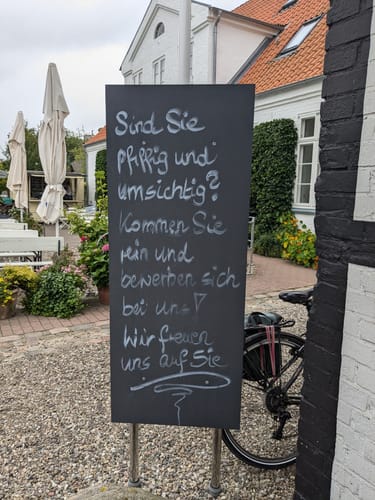 Sind Sie
pfiffig und
umsichtig?
Kommen Sie
rein und
bewerben sich
bei uns!
Wir freuen
uns auf Sie